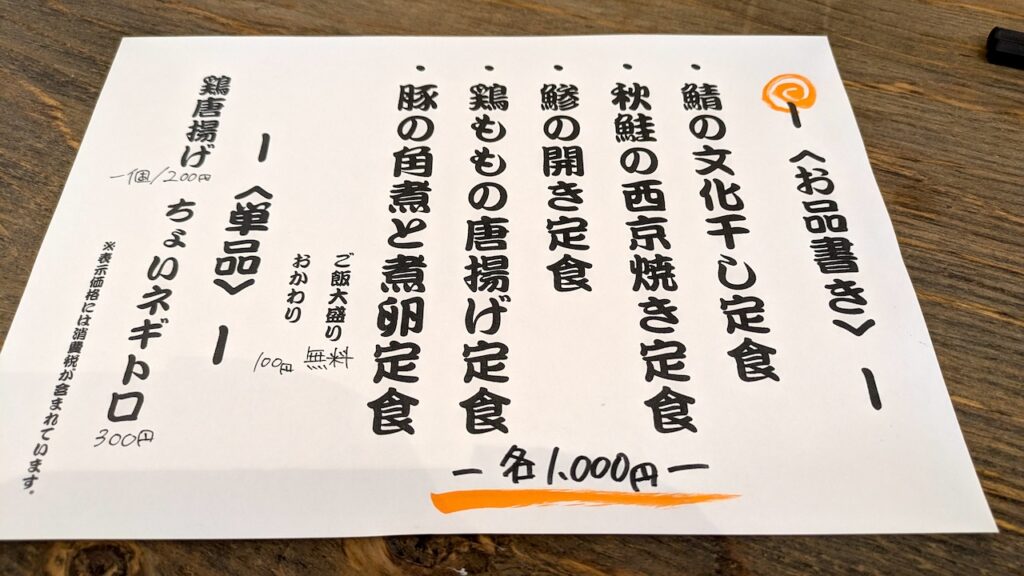 ー〈お品書き〉ー
・鯖の文化干し定食
・秋鮭の西京焼き定食
・鯵の開き定食
・鶏ももの唐揚げ定食
・豚の角煮と煮卵定食
ー各1,000円ー
ご飯大盛り 無料
おかわり 100円
ー〈単品〉ー
鶏唐揚げ 一個/200円
ちょいネギトロ 300円
※表示価格には消費税が含まれています。